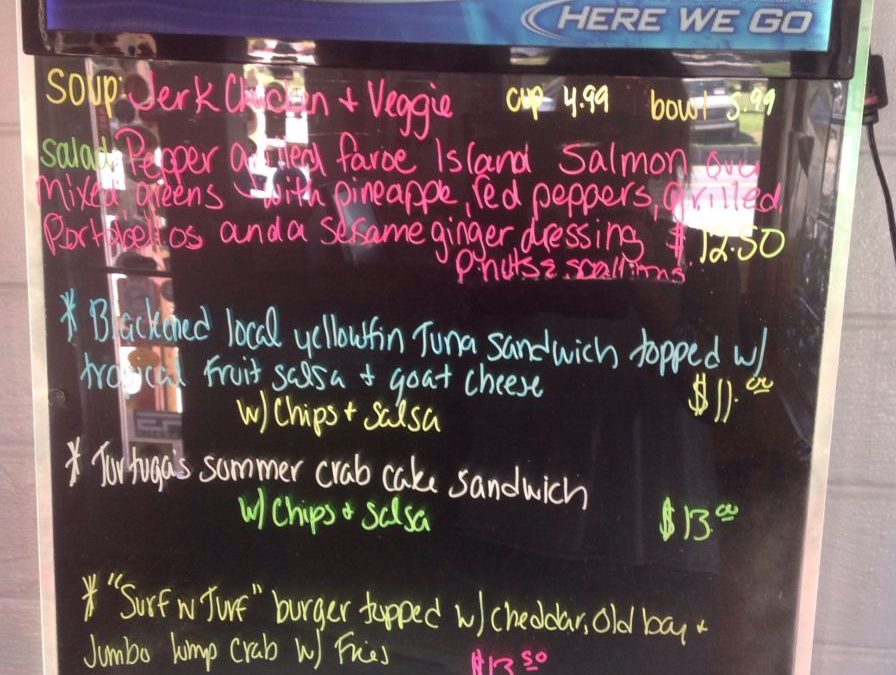 HERE WE GO
Soup: Jerk Chicken + Veggie cup 4.99 bowl 5.99
salad Pepper grilled faroe Island Salmon over
mixed greens with pineappe, red peppers, grilled
Portobellos and a sesame ginger dressing $12.50
Pnuts & scallions
* Blackened local yellowfin Tuna sandwich topped w/
tropical Fruit salsa + goat cheese $11.00
w/ Chips + salsa
* Tortuga's summer crab cake sandwich
w/ Chips + salsa $13.00
* "Surf n Turf" burger topped w/ cheddar, Old bay +
Jumbo lump crab w/ Fries
$13.50